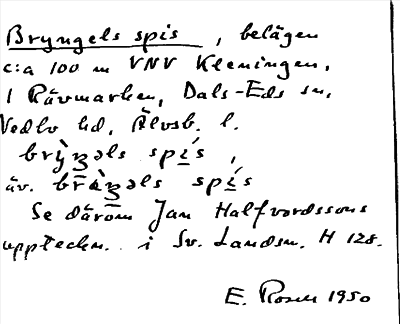 Bryngels spis, belägen
c:a 100 m VNV Kleningen,
i Rävmarken, Dals-Eds sn,
Vedbo hd, Älvsb. l.
brỳŋəls spís,
äv. brø̀ŋəls spís
Se därom Jan Halfvordssons
uppteckn. i Sv. Landsm. H 128.
E. Rosell 1950